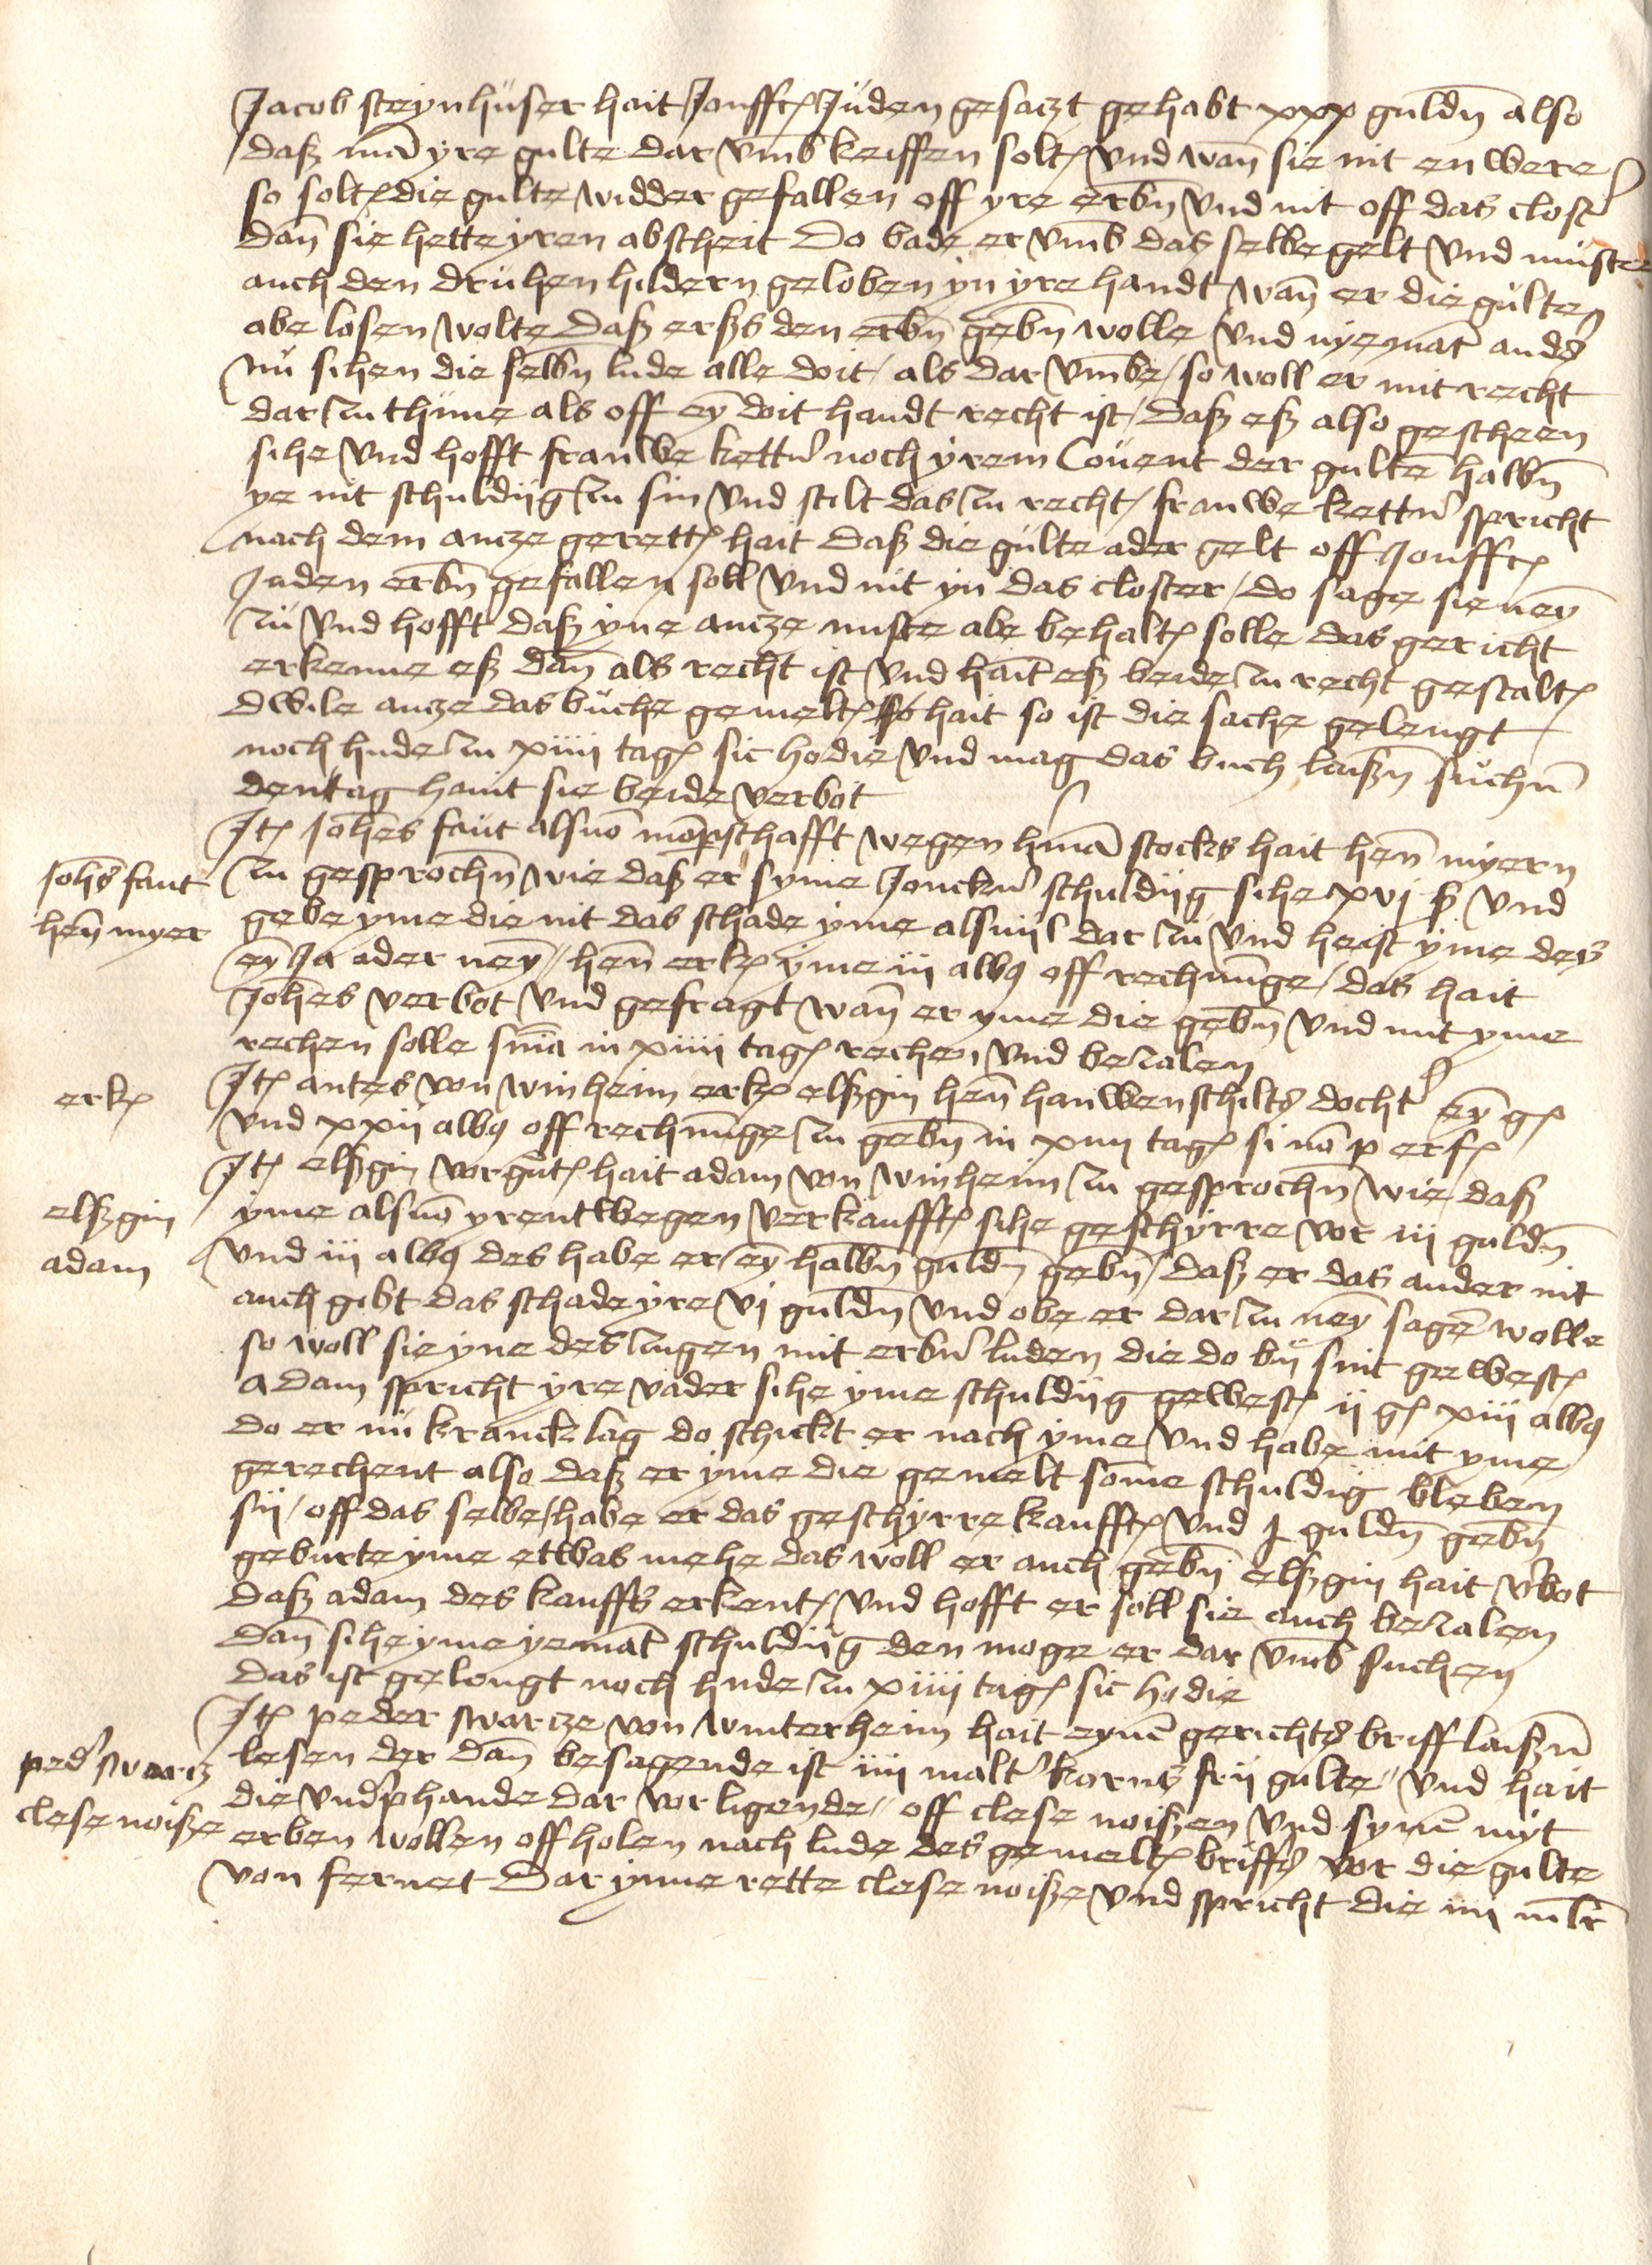 Jacob steynhuser hait Jonffr Juden gesaczt gehabt xxx guldn̄ also
daß mā yre gulte dar vmb keiffen solt vnd wan̄ sie nit en were
so solt die gulte widder gefallen off yre erbn̄ vnd nit off das clost
dan̄ sie hette yren abscheit Do bade er vmb das selbe gelt vnd muste
auch den druhen hildern geloben yn yre handt wan̄ er die gulten
abe losen wolte daß erßs den erbn̄ gebn̄ wolle vnd nyemāt ands
Nu sihen die selbn̄ lude alle doit / als dar vmbe / so woll er mit recht
dar zu thune als off eȳ doit handt recht ist / daß eß also gescheen
sihe vnd hofft frauwe kettn̄ noch yrem Couent der gultē halbn̄
ye nit schuldiig zu sin vnd stilt das zu recht / frauwe kettn̄ spricht
nach dem ancze gerett hait daß die gulte ader gelt off Jonffr
Juden erbn̄ gefallen soll vnd nit yn das closter / do sage sie neȳ
zu vnd hofft daß yne ancze muste abe behalt solle das gericht
erkenne eß dan̄ als recht ist vnd hāit eß beide zu recht gestalt
dwile ancze das buche gemelt hait so ist die sache gelengt
noch hude zu xiiii tag sic hodie vnd mag das buch laißn̄ suchn̄
den tag hanit sie beide verbot
It Johēs faut alsuō mōpschafft wegen hmā stocks hait hen̄ myern
Johēs faut
hen̄ myer
zu gesprochn̄ wie daß er syme Jonckn̄ schuldiig sihe xvj ß vnd
gebe yme die nit das schade yme alsuil dar zu vnd heist yme des
eȳ Ja ader neȳ / hen̄ erk yme iii albq off rechnu̅ge / das hait
Johēs verbot vnd gefragt wan̄ er yme die gebn̄ vnd mit yme
rechen solle snīa in xiiii tag rechen vnd bezalen
erk
It antes von winheim erk elßgin hen̄ hauwenschilts docht ey̅ g
vnd xxii albq off rechnu̅ge zu gebn̄ in xiiii tag si nō p erf
elßgin
adam
It elßgin vorgūt hait adam von winheim zu gesprochn̄ wie daß
yme alsuō yrentwegen verkaufft sihe geschyrre vor iii guldn̄
vnd iii albq des habe er ey̅ halbn̄ guldn̄ gebn̄ / daß er das ander nit
auch gibt das schade yre vj guldn̄ vnd obe er dar zu ney̅ sagē wolle
so woll sie yne des zugen mit erbn̄ luden die do by sint gewest
adam spricht yre vader sihe yme schuldiig gewest ii g xiii albq
do er nu kranck lag do schickt er nach yme vnd habe mit yme
gerechent also daß er yme die gemelt some schuldig bleben
sii / off das selbe / habe er das geschyrre kaufft vnd j guldn̄ gebn̄
geburte yme ettwas mehe das woll er auch gebn̄ elßgin hait v̄bot
daß adam des kauffs erkent vnd hofft er soll sie auch bezalen
dan̄ sihe yme yemāt schuldiig den moge er dar vmb suchen
das ist gelengt noch hude zu xiiii tag sic hodie
ped swarcz
clese noiße
It peder swarcze von winterheim hait eynē gerichts briff laißn̄
lesen der dan̄ besagende ist iiii malt korns frii gulte / vnd hait
die vndphande dar vor ligende / off clese noißen vnd synē myt
erben wollen off holen nach lude des gemelt briffs vor die gulte
von fernet dar yme rette clese noiße vnd spricht die iiii ml̄r